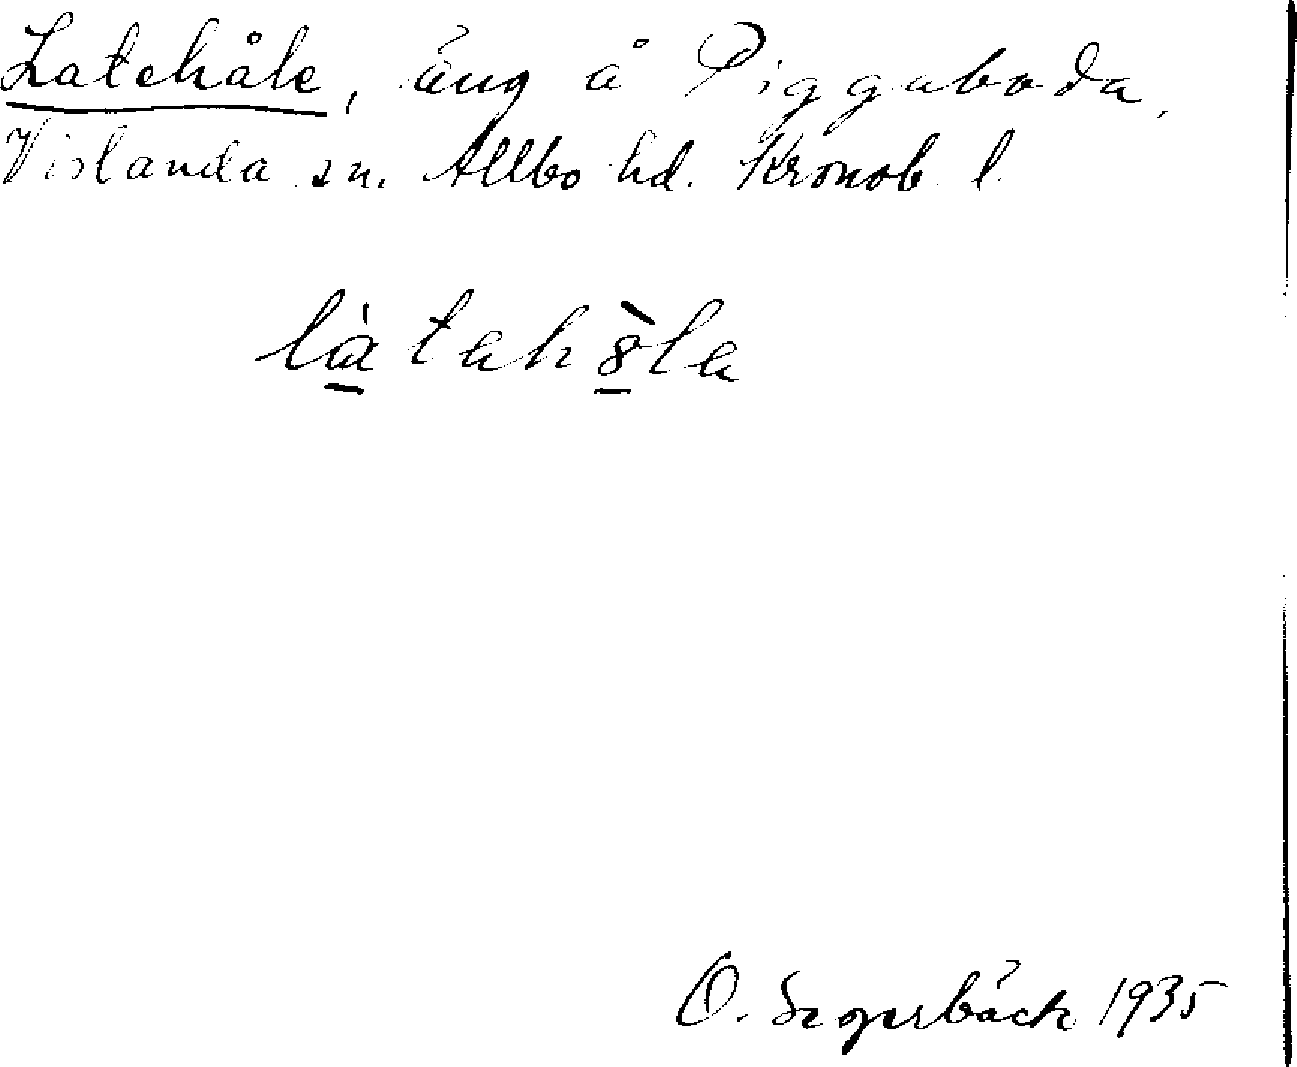 Latehåle, äng å Piggaboda,
Vislanda sn. Allbo hd. Kronob l.
là tahòla
O. Segerbäck 1935